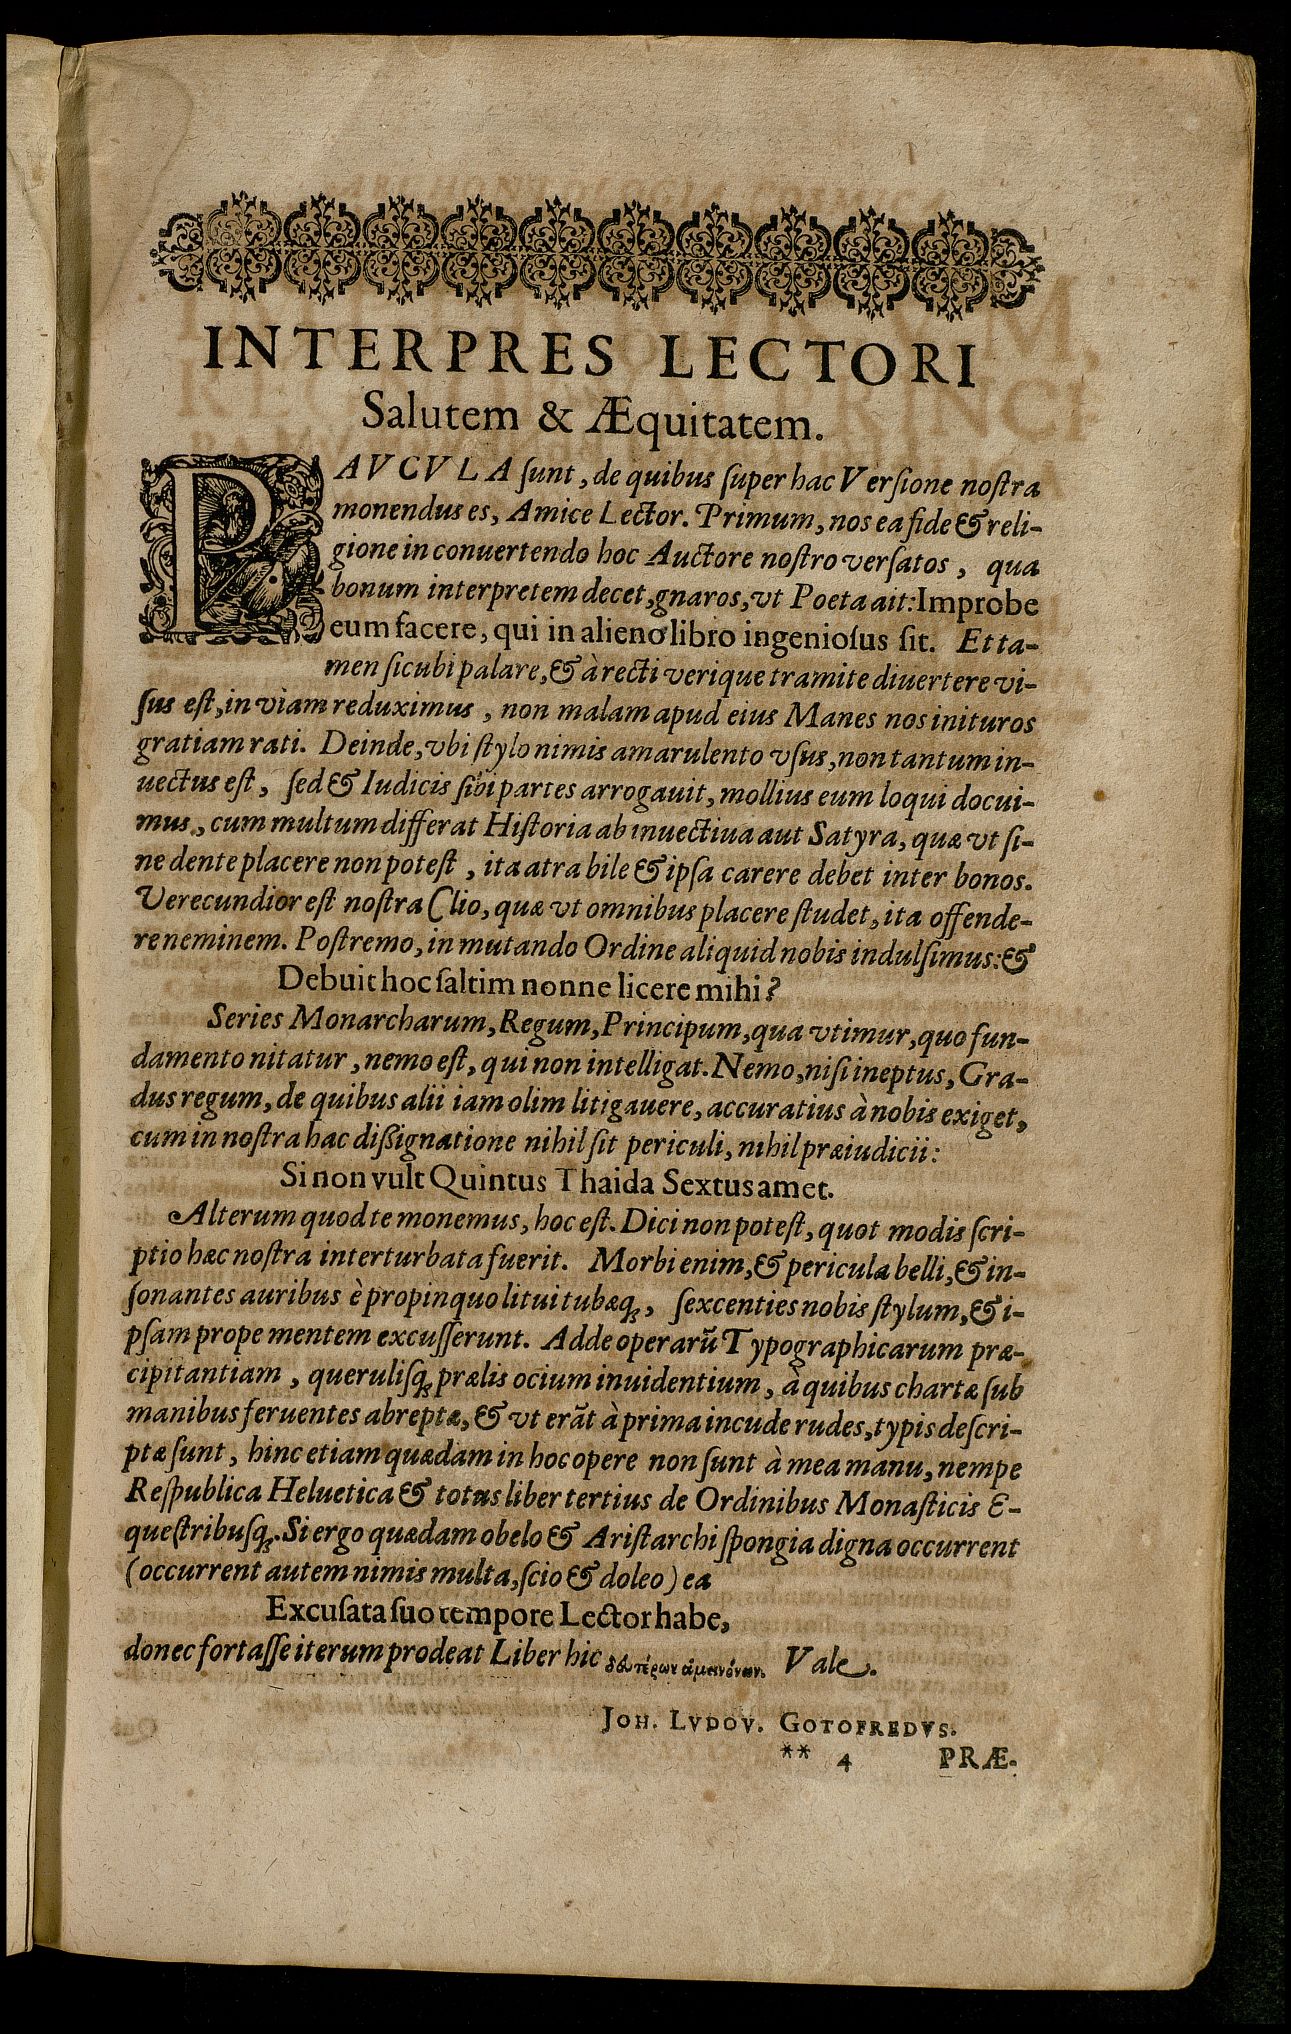 INTERPRES LECTORI
Salutem & Æquitatem.
PAVCVLA ſunt, de quibus ſuper hac Verſione noſtra
monendus es, Amice Lector. Primum, nos ea fide & reli-
gione in conuertendo hoc Auctore noſtro verſatos, qua
bonum interpretem decet, gnaros, vt Poeta ait: Improbe
eum facere, qui in alieno libro ingenioſus ſit. Et ta-
men ſicubi palare, & à recti verique tramite diuertere vi-
ſus eſt, in viam reduximus, non malam apud eius Manes nos inituros
gratiam rati. Deinde, vbi ſtylo nimis amarulento vſus, non tantum in-
uectus eſt, ſed & Iudicis ſibi partes arrogauit, mollius eum loqui docui-
mus, cum multum differat Hiſtoria ab inuectiua aut Satyra, quæ vt ſi-
ne dente placere non poteſt, ita atra bile & ipſa carere debet inter bonos.
Verecundior eſt noſtra Clio, quæ vt omnibus placere ſtudet, ita offende-
re neminem. Poſtremo, in mutando Ordine aliquid nobis indulſimus: &
Debuit hoc ſaltim nonne licere mihi?
Series Monarcharum, Regum, Principum, qua vtimur, quo fun-
damento nitatur, nemo eſt, qui non intelligat. Nemo, niſi ineptus, Gra-
dus regum, de quibus alii iam olim litigauere, accuratius à nobis exiget,
cum in noſtra hac diſsignatione nihil ſit periculi, nihil præiudicii:
Si non vult Quintus Thaida Sextus amet.
Alterum quod te monemus, hoc eſt. Dici non poteſt, quot modis ſcri-
ptio hæc noſtra interturbata fuerit. Morbi enim, & pericula belli, & in-
ſonantes auribus è propinquo litui tubæq;, ſexcenties nobis ſtylum, & i-
pſam prope mentem excuſſerunt. Adde operarũ Typographicarum præ-
cipitantiam, queruliſq; prælis ocium inuidentium, à quibus chartæ ſub
manibus feruentes abreptæ, & vt erãt à prima incude rudes, typis deſcri-
ptæ ſunt, hinc etiam quædam in hoc opere non ſunt à mea manu, nempe
Reſpublica Heluetica & totus liber tertius de Ordinibus Monaſticis E-
queſtribuſq;. Si ergo quædam obelo & Ariſtarchi ſpongia digna occurrent
(occurrent autem nimis multa, ſcio & doleo) ea
Excuſata ſuo tempore Lector habe,
donec fortaſſe iterum prodeat Liber hic δευτέρων ἀμεινόνων. Vale.
JOH. LVDOV. GOTOFREDVS.
** 4 PRÆ-